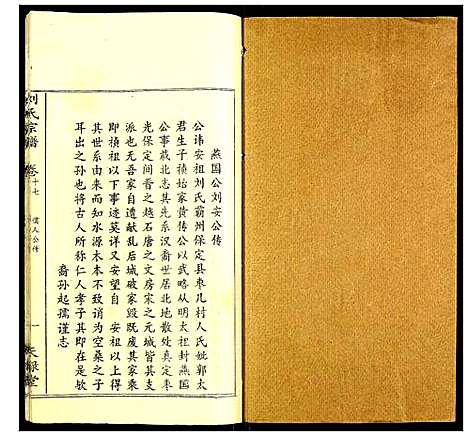 燕国公刘安公传
公讳安祖刘氏蓟州保定县枣儿村人氏妣郭太
君生子祯始家黄传公以武略从明太祖封燕国
公事蕆北志其先系汉裔世居北地散处真定枣
光保定间晋之越石唐之文房宋之元城皆其支
派也无吾家自遭献乱后城破家毁既废其家乘
即祯祖以下事迹莫详又安望自　安祖以上得
其世系由来而知水源木本不致诮为空桑之子
耳出之孙也将古人所称仁人孝子其即在是欤
裔孙起孺谨志
刘氏宗谱
卷十七
儒人公传
一
天禄堂